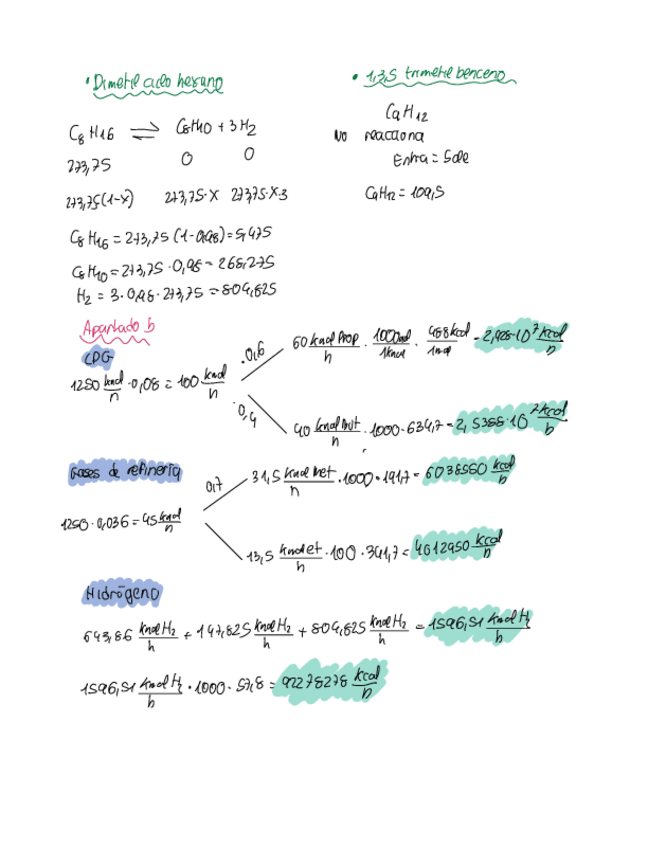 • Dimetil ciclo hexano
• 1,3,5 trimetil benceno
C8 H16 ⇌ C8H10 + 3H2
273,75 0 0
273,75(1-x) 273,75·X 273,75·X·3
C8H16 = 273,75 (1-0,98) = 5,475
C8H10 = 273,75 · 0,98 = 268,275
H2 = 3 · 0,98 · 273,75 = 804,825
C9H12
No reacciona
Entra = Sale
C9H12 = 109,5
Apartado b
LPG
1250 kmol/h · 0,08 = 100 kmol/h
·0,6
60 kmol Prop/h · 1000mol/1kmol · 488kcal/1mol = 2,928·10^7 kcal/h
·0,4
40 kmol But/h · 1000 · 634,7 = 2,5388·10^7 kcal/h
Gases de refinería
1250 · 0,036 = 45 kmol/h
0,7
31,5 kmol Met/h · 1000 · 191,7 = 6038550 kcal/h
13,5 kmol et/h · 100 · 341,7 = 4612950 kcal/h
Hidrógeno
643,86 kmol H2/h + 147,825 kmol H2/h + 804,825 kmol H2/h = 1596,51 kmol H2/h
1596,51 kmol H2/h · 1000 · 57,8 = 92278278 kcal/h